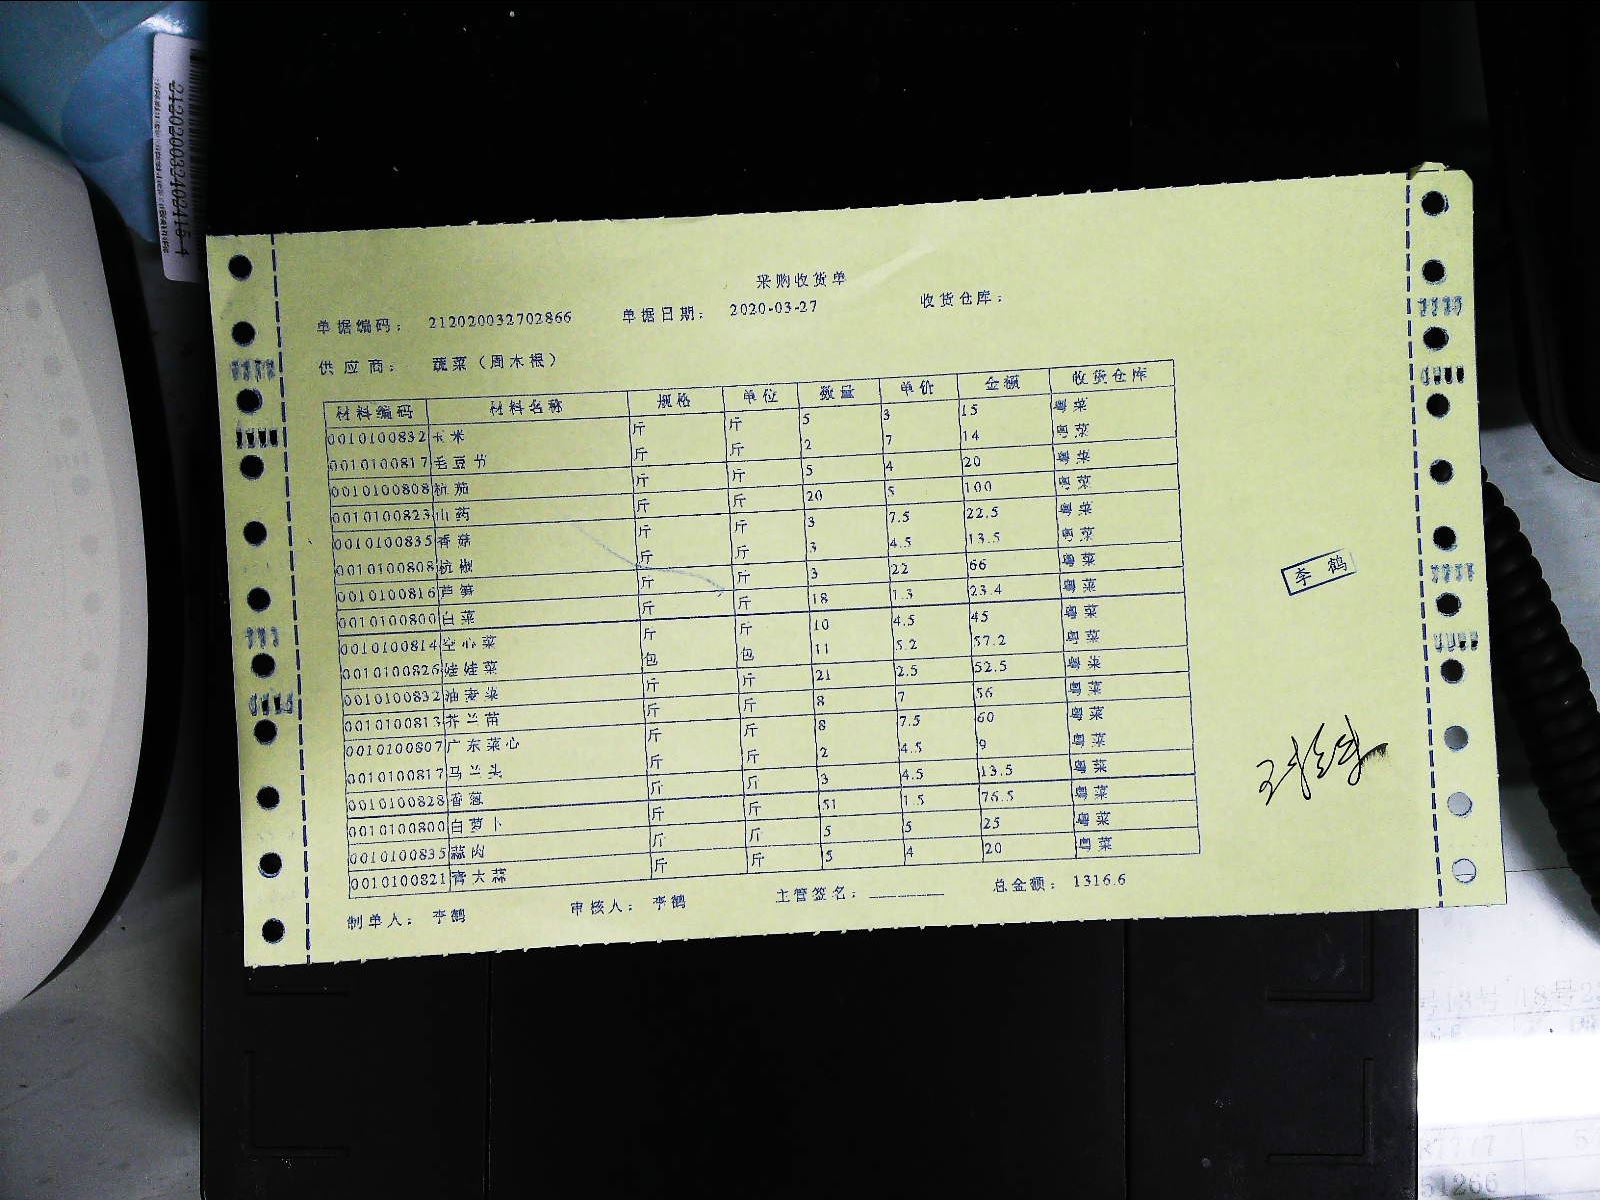 采购收货单
单据编码： 212020032702866 单据日期： 2020-03-27 收货仓库：
供应商： 蔬菜（周木根）
材料编码 材料名称 规格 单位 数量 单价 金额 收货仓库
0010100832 玉米 斤 斤 5 3 15 粤菜
0010100817 毛豆节 斤 斤 2 7 14 粤菜
0010100808 杭茄 斤 斤 5 4 20 粤菜
0010100823 山药 斤 斤 20 5 100 粤菜
0010100835 香菇 斤 斤 3 7.5 22.5 粤菜
0010100808 杭椒 斤 斤 3 4.5 13.5 粤菜
0010100816 芦笋 斤 斤 3 22 66 粤菜
0010100800 白菜 斤 斤 18 1.3 23.4 粤菜
0010100814 空心菜 斤 斤 10 4.5 45 粤菜
0010100826 娃娃菜 包 包 11 5.2 57.2 粤菜
0010100832 油麦菜 斤 斤 21 2.5 52.5 粤菜
0010100813 芥兰苗 斤 斤 8 7 56 粤菜
0010100807 广东菜心 斤 斤 8 7.5 60 粤菜
0010100817 马兰头 斤 斤 2 4.5 9 粤菜
0010100828 香葱 斤 斤 3 4.5 13.5 粤菜
0010100800 白萝卜 斤 斤 51 1.5 76.5 粤菜
0010100835 蒜肉 斤 斤 5 5 25 粤菜
0010100821 青大蒜 斤 斤 5 4 20 粤菜
制单人： 李鹤 审核人： 李鹤 主管签名： 总金额： 1316.6
李鹤